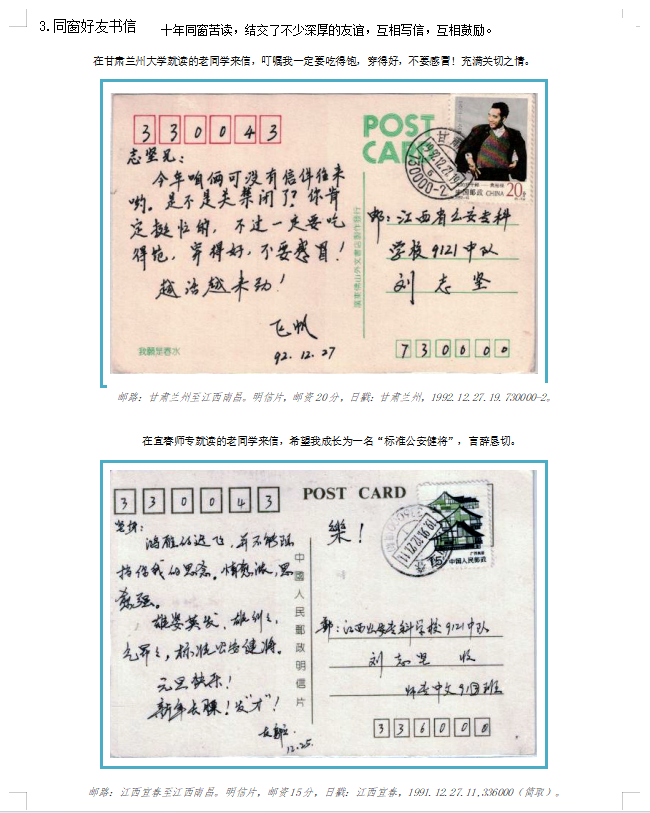 3.同窗好友书信
十年同窗苦读，结交了不少深厚的友谊，互相写信，互相鼓励。
在甘肃兰州大学就读的老同学来信，叮嘱我一定要吃得饱，穿得好，不要感冒！充满关切之情。
330043
志坚兄：
今年咱俩可没有信件往来
哟。是不是关禁闭了？你肯
定挺忙的，不过一定要吃
得饱，穿得好，不要感冒！
越活越来劲！
飞帆
92.12.27
我願是春水
POST
CARD
20分
中国邮政 CHINA
1992.12.27.19
730000-2
邮：江西省公安专科
学校9121中队
刘志坚
730000
邮路：甘肃兰州至江西南昌。明信片，邮资20分，日戳：甘肃兰州，1992.12.27.19.730000-2。
在宜春师专就读的老同学来信，希望我成长为一名“标准公安健将”，言辞恳切。
330043
POST CARD
鸿雁的迟飞，并不能阻
挡你我的思念。情愈浓，思
愈强。
雄姿英发，
标准公安健将。
元旦快乐！
新年长膘！发“才”！
12.25.
中國人民郵政明信片
樂！
15
中国人民邮政
邮：江西公安专科学校9121中队
刘志坚 收
师专中文91 班
336000
邮路：江西宜春至江西南昌。明信片，邮资15分，日戳：江西宜春，1991.12.27.11,336000（简取）。